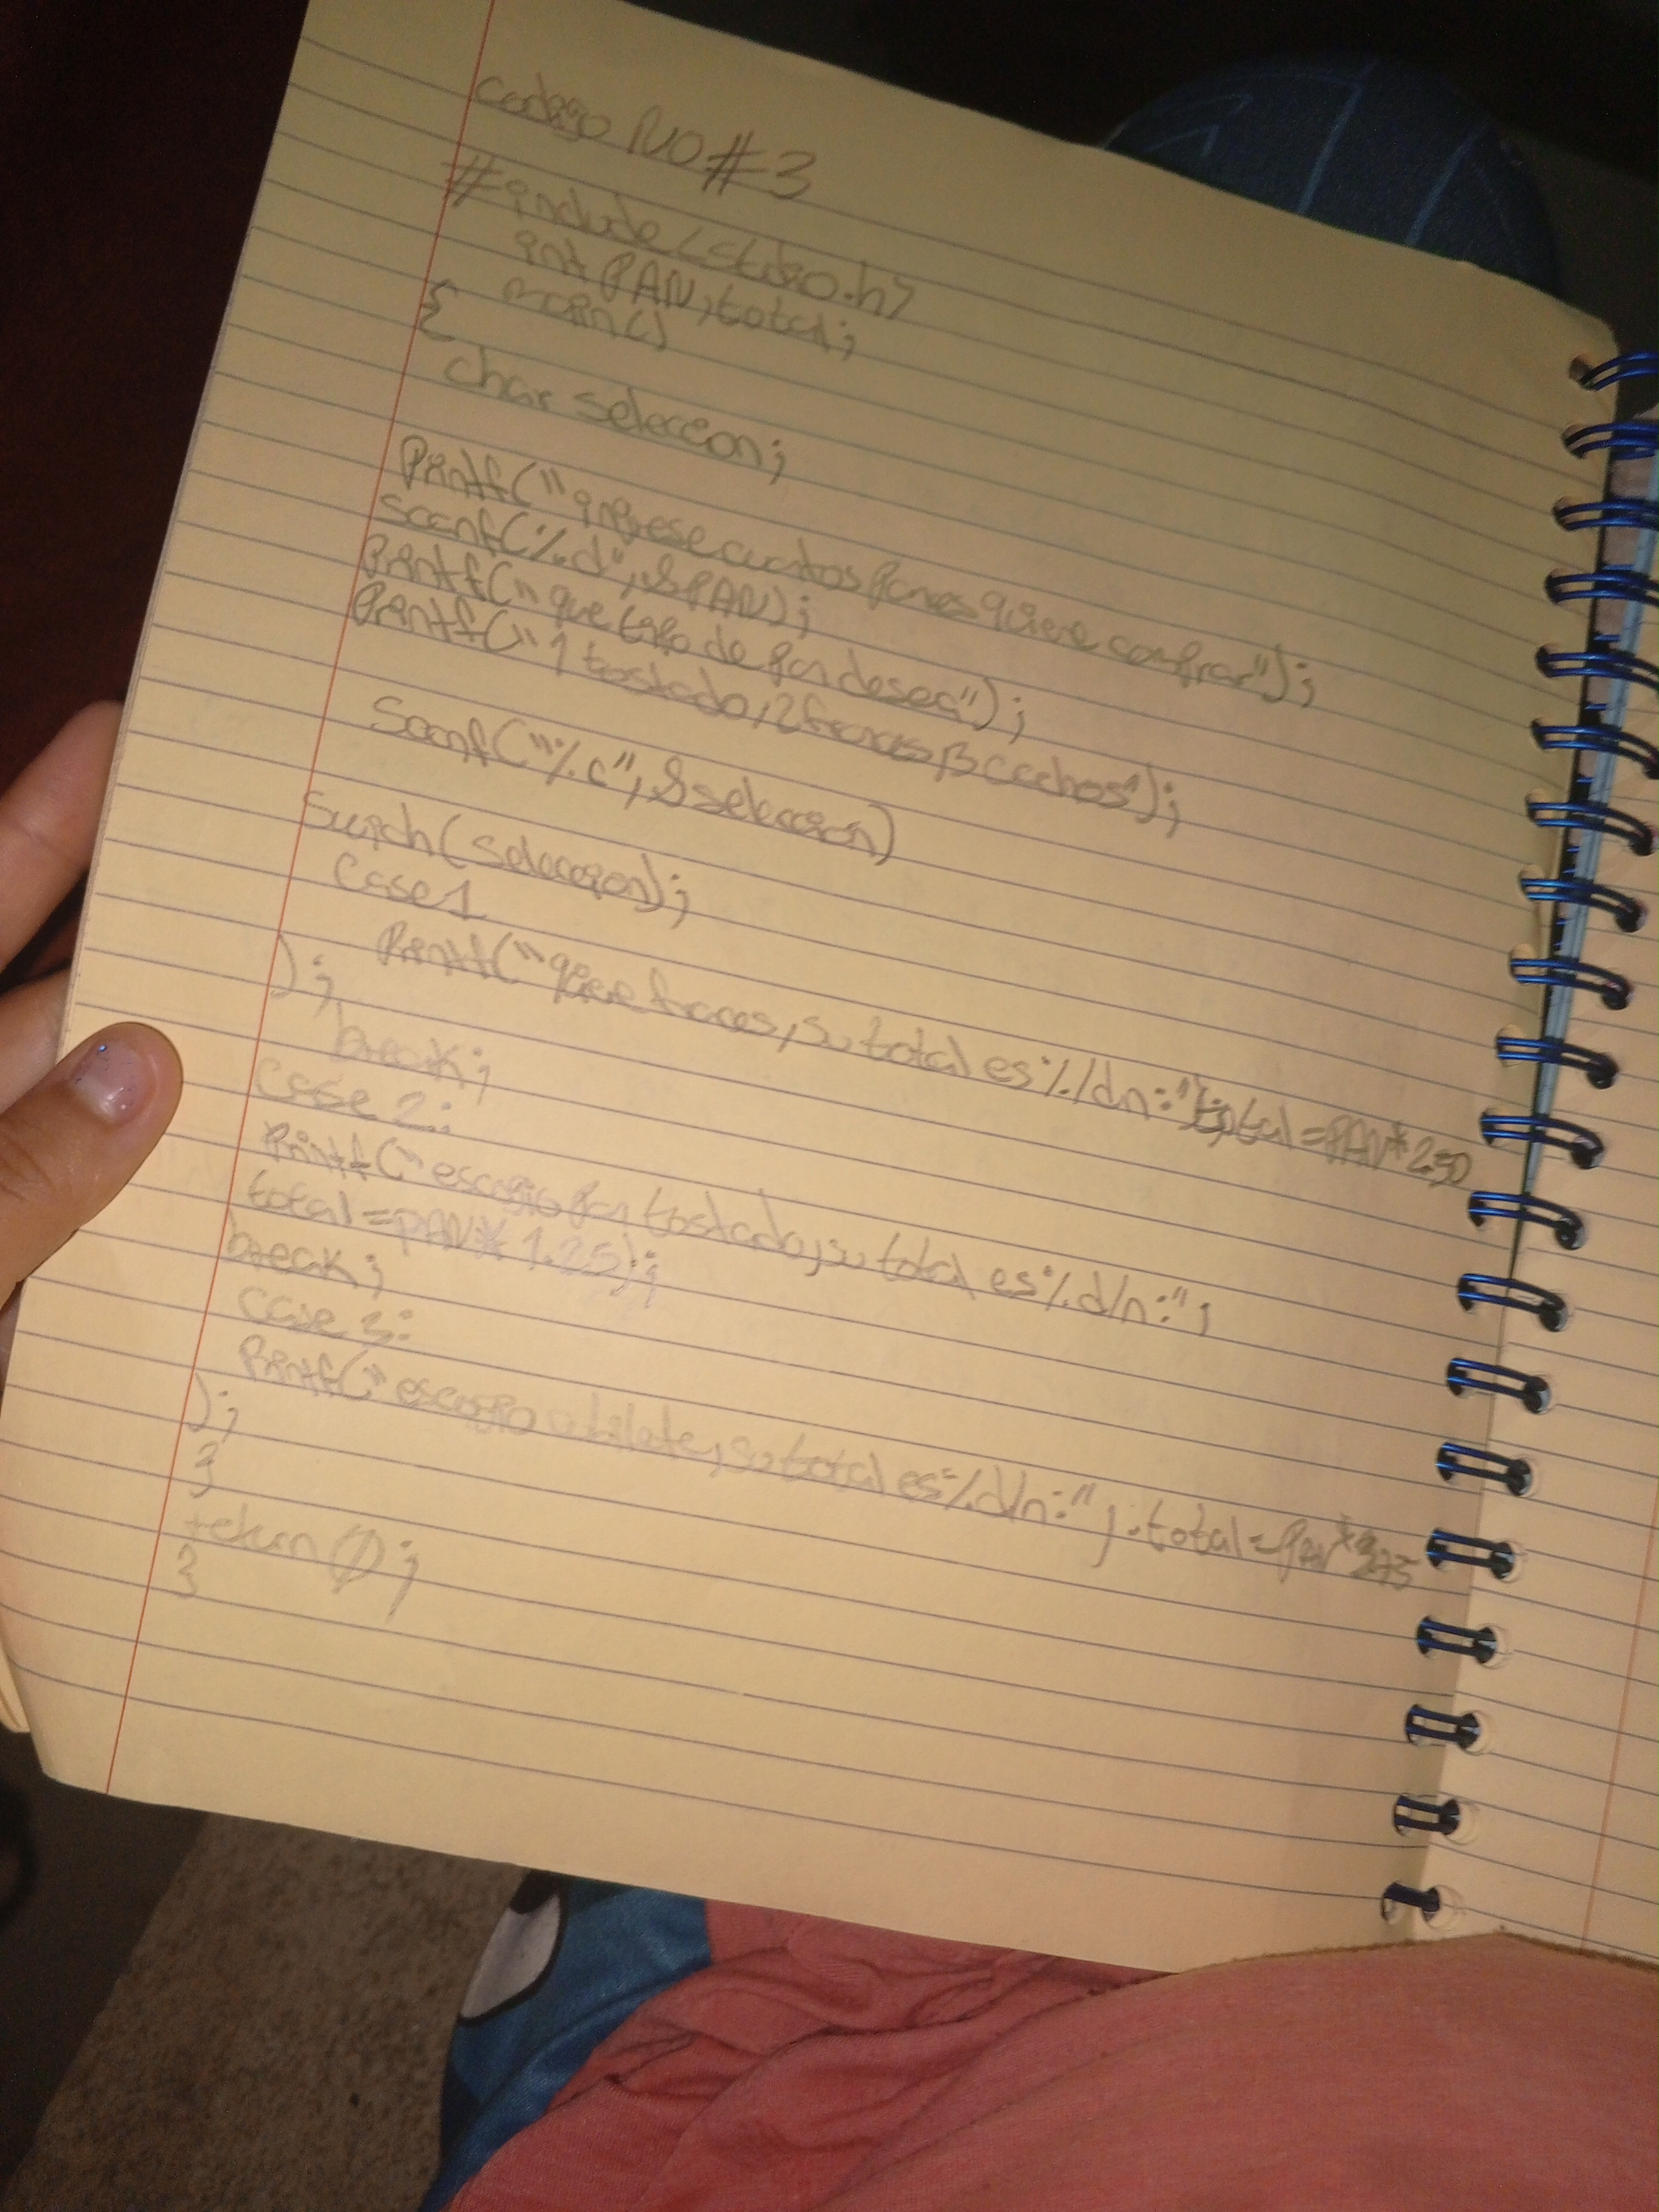 codigo NO #3
#include <stdio.h>
int PAN, total;
main()
{
char seleccion;
Printf("ingrese cuantos Panes quiere comprar");
scanf(%d", &PAN);
Printf("que tipo de Pan desea");
Printf("1 tostado, 2 frances, 3 cachos");
Scanf("%c", &seleccion)
Swich(seleccion);
Case 1
Printf("quiere frances, su total es %/dn:" total = PAN * 250
);
break;
case 2:
Printf("escogio Pan tostado, su total es %d/n:",
total = PAN * 1.25);
break;
case 3:
Printf("escogio su total es %d/n:", total = PAN *
);
}
return 0;
}